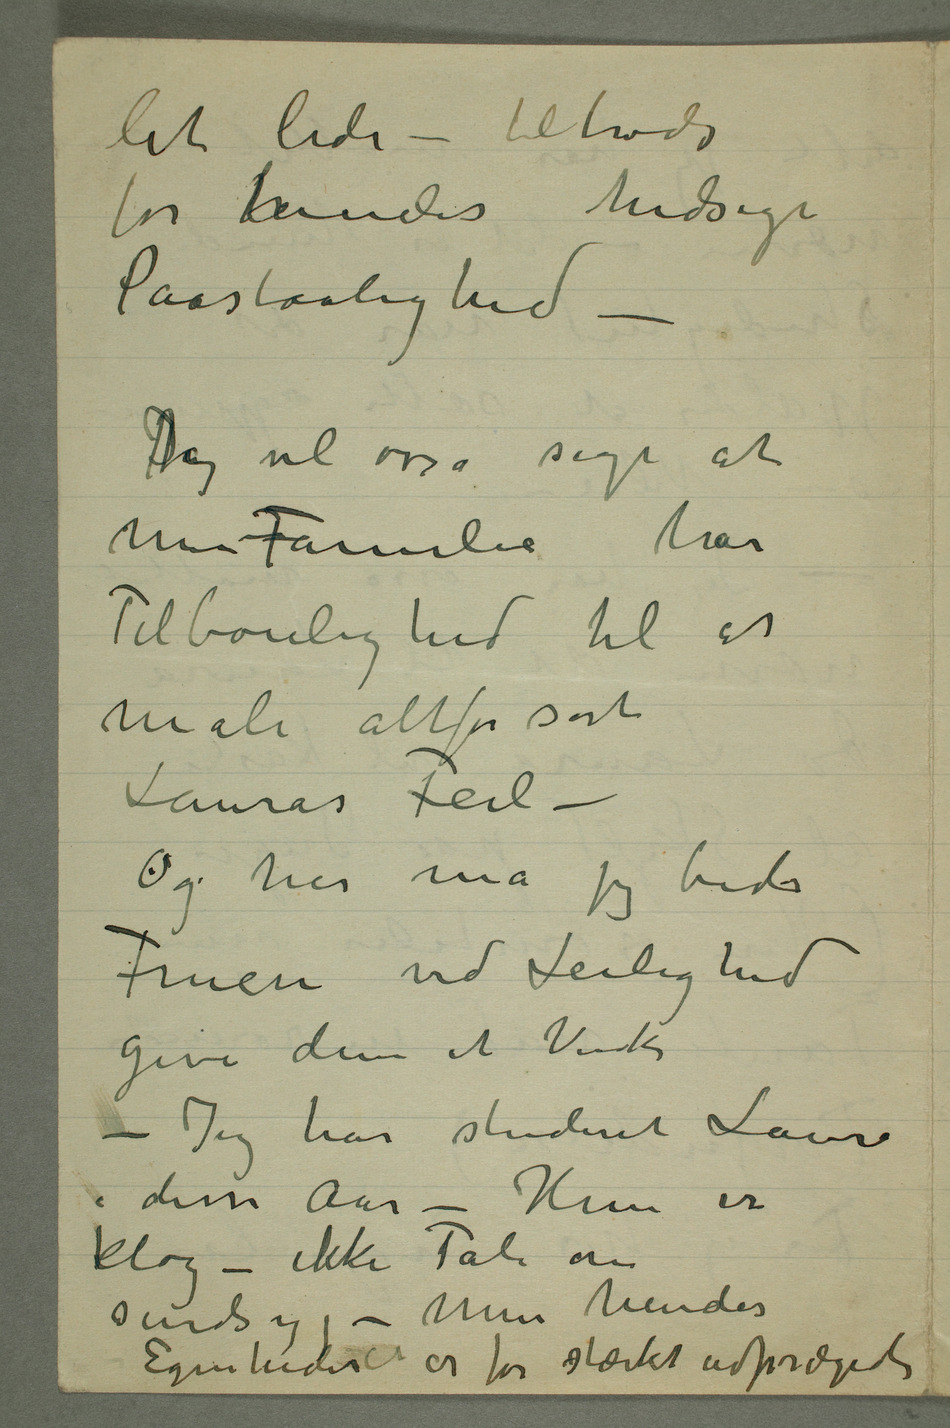 let lede – tiltrods
for hendes hidsige
Paastaalighed –
Jeg vil også sige at
min Familie har
Tilbøielighed til at
male altfor sort
Lauras Feil –
Og her må jeg bede
Fruen ved Leilighed
give dem et Vink
– Jeg har studeret Laura
i disse Aar – Hun er
klog – ikke Tale om
sindsyg – Men hendes
Egenheder er for stærkt udprægede